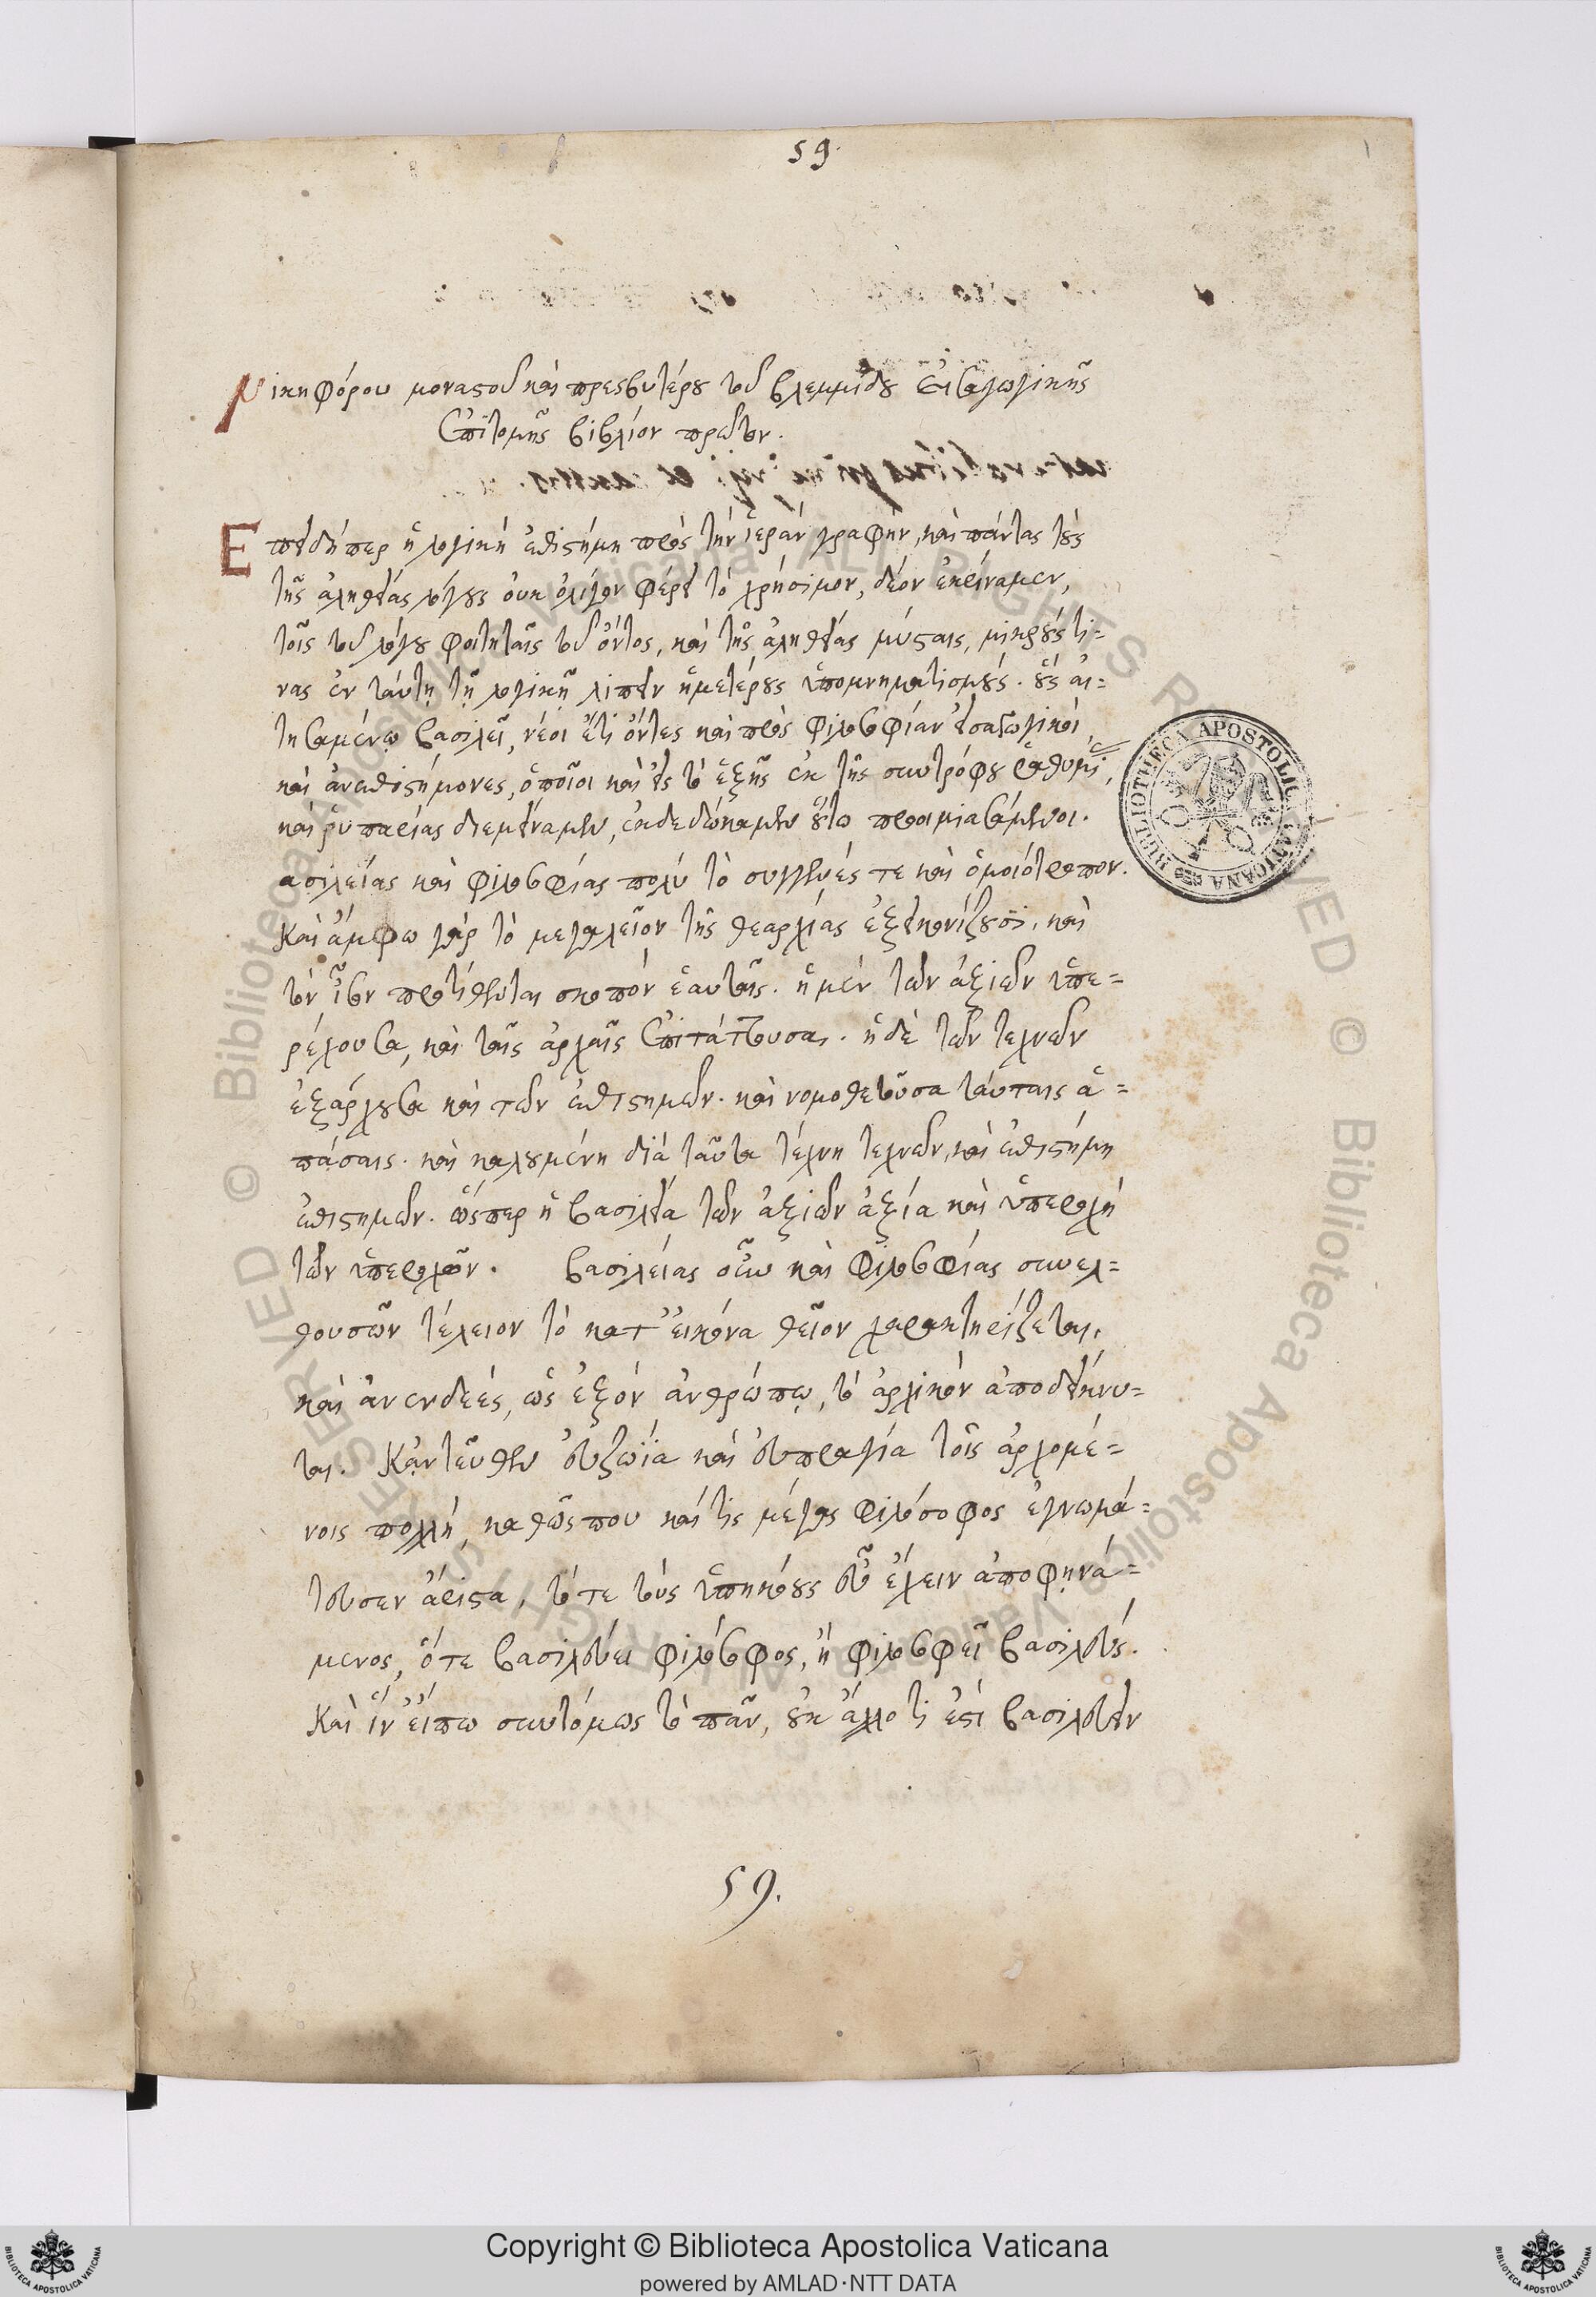 59.
Νικηφόρου μοναστοῦ καὶ πρεσβυτέρου τοῦ βλεμμίδου Εἰσαγωγικῆς
Ἐπιτομῆς βιβλίον πρῶτον.
Ἐπειδήπερ ἡ λογικὴ ἐπιστήμη πρὸς τὴν ἱερὰν γραφὴν, καὶ πάντας τοὺς
τῆς ἀληθείας λόγους οὐκ ὀλίγον φέρει τὸ χρήσιμον, δέον ἐκρίναμεν,
τοῖς τοῦ λόγου φοιτηταῖς τοῦ ὄντος, καὶ τῆς ἀληθείας μύσταις, μικρούς τι=
νας ἐν ταύτῃ τῇ λογικῇ λιπεῖν ἡμετέρους ὑπομνηματισμούς. οὓς αἰ=
τησαμένῳ βασιλεῖ, νέοι ἔτι ὄντες καὶ πρὸς φιλοσοφίαν εἰσαγωγικοὶ,
καὶ ἀνεπιστήμονες, ὁποῖοι καὶ εἰς τὸ ἑξῆς ἐκ τῆς συντρόφου ῥαθυμί,
καὶ ῥυπαρίας διεμείναμεν, ἐκδεδώκαμεν οὕτω προοιμιασάμενοι.
ασιλείας καὶ φιλοσοφίας πολὺ τὸ συγγενές τε καὶ ὁμοιότροπον.
Καὶ ἄμφω γὰρ τὸ μεγαλεῖον τῆς θεαρχίας ἐξεικονίζουσι, καὶ
τὸν ἶσον προτίθενται σκοπὸν ἑαυταῖς. ἡ μὲν τῶν ἀξιῶν ὑπε=
ρέχουσα, καὶ ταῖς ἀρχαῖς ἐπιτάττουσα. ἡ δὲ τῶν τεχνῶν
ἐξάρχουσα καὶ τῶν ἐπιστημῶν. καὶ νομοθετοῦσα ταύταις ἁ=
πάσαις. καὶ καλουμένη διὰ ταῦτα τέχνη τεχνῶν, καὶ ἐπιστήμη
ἐπιστημῶν. ὥσπερ ἡ βασιλεία τῶν ἀξιῶν ἀξία καὶ ὑπεροχὴ
τῶν ὑπεροχῶν. βασιλείας οὖν καὶ φιλοσοφίας συνελ=
θουσῶν τέλειον τὸ κατ' εἰκόνα θεῖον χαρακτηρίζεται,
καὶ ἀνενδεές, ὡς ἐξὸν ἀνθρώπῳ, τὸ ἀρχικὸν ἀποδείκνυ=
ται. Κἀντεῦθεν εὐζωΐα καὶ εὐπραγία τοῖς ἀρχομέ=
νοις πολλή, καθώς που καί τις μέγας φιλόσοφος ἐγνωμά=
τευσεν ἄριστα, τότε τοὺς ὑπηκόους εὖ ἔχειν ἀποφηνά=
μενος, ὅτε βασιλεύει φιλόσοφος, ἢ φιλοσοφεῖ βασιλεύς.
Καὶ ἵν' εἴπω συντόμως τὸ πᾶν, οὐκ ἄλλο τι ἐστὶ βασιλεύειν
59.
BIBLIOTHECA APOSTOLICA VATICANA
© Biblioteca Apostolica Vaticana ALL RIGHTS RESERVED © Biblioteca Apostolica Vaticana ALL RIGHTS RESERVED
BIBLIOTECA APOSTOLICA VATICANA
Copyright © Biblioteca Apostolica Vaticana
powered by AMLAD·NTT DATA
BIBLIOTECA APOSTOLICA VATICANA